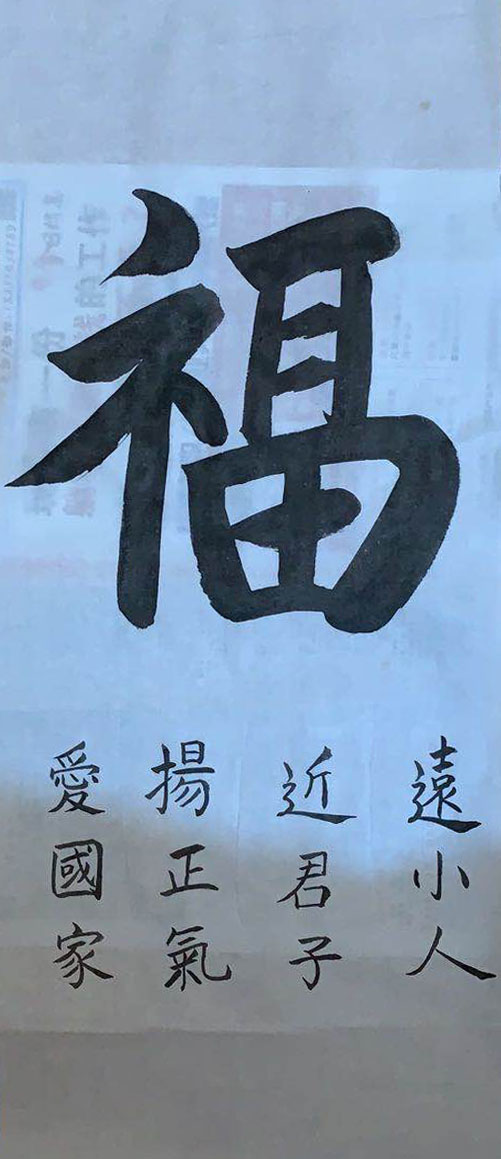 福
遠小人
近君子
揚正氣
愛國家